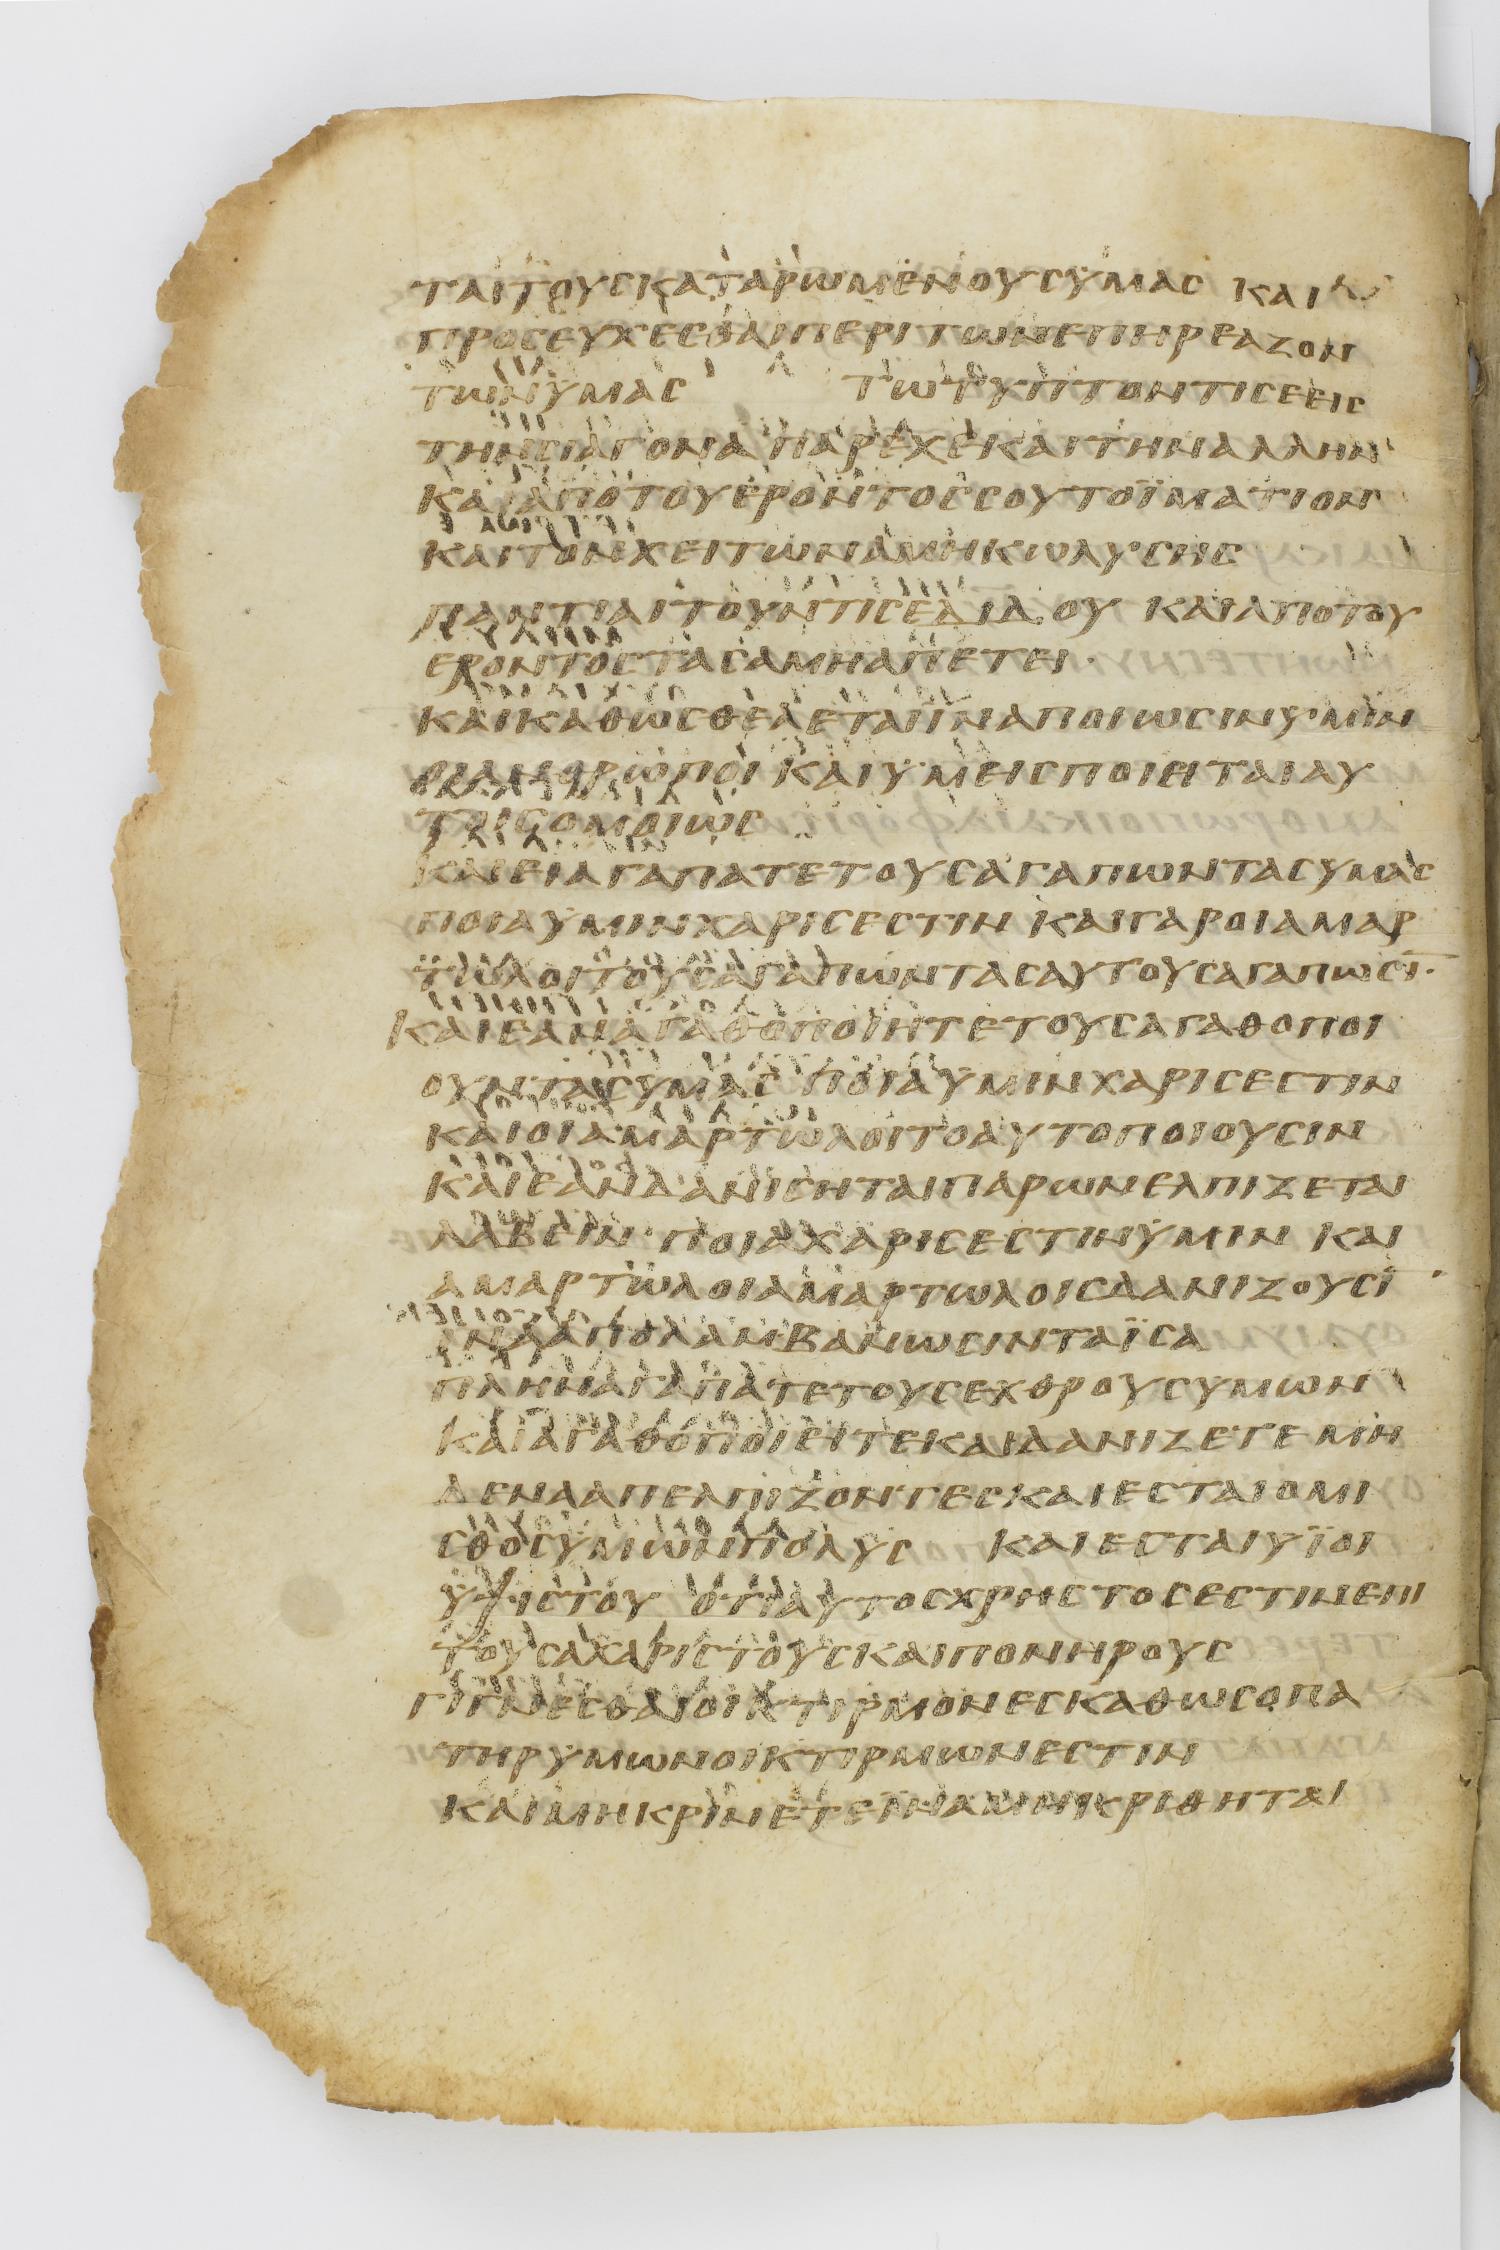 ΤΑΙΤΟΥCΚΑΤΑΡΩΜΕΝΟΥCΥΜΑC ΚΑΙ
ΠΡΟCΕΥΧΕCΘΑΙΠΕΡΙΤΩΝΕΠΗΡΕΑΖΟΝ
ΤΩΝΥΜΑC ΤΩΤΥΠΤΟΝΤΙCΕΕΙC
ΤΗΝCΙΑΓΟΝΑΠΑΡΕΧΕΚΑΙΤΗΝΑΛΛΗΝ
ΚΑΙΑΠΟΤΟΥΕΡΟΝΤΟCCΟΥΤΟΪΜΑΤΙΟΝ
ΚΑΙΤΟΝΧΕΙΤΩΝΑΜΗΚΩΛΥCΗC
ΠΑΝΤΙΑΙΤΟΥΝΤΙCΕΔΙΔΟΥ ΚΑΙΑΠΟΤΟΥ
ΕΡΟΝΤΟCΤΑCΑΜΗΑΠΕΤΕΙ·
ΚΑΙΚΑΘΩCΘΕΛΕΤΑΙΪΝΑΠΟΙΩCΙΝΥΜΙΝ
ΟΙΑΝΘΡΩΠΟΙ ΚΑΙΥΜΕΙCΠΟΙΕΙΤΑΙΑΥ
ΤΟΙCΟΜΟΙΩC
ΚΑΙΕΙΑΓΑΠΑΤΕΤΟΥCΑΓΑΠΩΝΤΑCΥΜΑC
ΠΟΙΑΥΜΙΝΧΑΡΙCΕCΤΙΝ ΚΑΙΓΑΡΟΙΑΜΑΡ
ΤΩΛΟΙΤΟΥCΑΓΑΠΩΝΤΑCΑΥΤΟΥCΑΓΑΠΩCΙ̅·
ΚΑΙΕΑΝΑΓΑΘΟΠΟΙΗΤΕΤΟΥCΑΓΑΘΟΠΟΙ
ΟΥΝΤΑCΥΜΑC ΠΟΙΑΥΜΙΝΧΑΡΙCΕCΤΙΝ
ΚΑΙΟΙΑΜΑΡΤΩΛΟΙΤΟΑΥΤΟΠΟΙΟΥCΙΝ
ΚΑΙΕΑΝΔΑΝΙCΗΤΑΙΠΑΡΩΝΕΛΠΙΖΕΤΑΙ
ΛΑΒΕΙΝ· ΠΟΙΑΧΑΡΙCΕCΤΙΝΥΜΙΝ ΚΑΙ
ΑΜΑΡΤΩΛΟΙΑΜΑΡΤΩΛΟΙCΔΑΝΙΖΟΥCΙ̅
ΙΝΑΑΠΟΛΑΜΒΑΝΩCΙΝΤΑΪCΑ
ΠΛΗΝΑΓΑΠΑΤΕΤΟΥCΕΧΘΡΟΥCΥΜΩΝ
ΚΑΙΑΓΑΘΟΠΟΙΕΙΤΕΚΑΙΔΑΝΙΖΕΤΕΜΗ
ΔΕΝΑΑΠΕΛΠΙΖΟΝΤΕCΚΑΙΕCΤΑΙΟΜΙ
CΘΟCΥΜΩΝΠΟΛΥC ΚΑΙΕCΤΑΙΥΪΟΙ
ΥΨΙCΤΟΥ ΟΤΙΑΥΤΟCΧΡΗCΤΟCΕCΤΙΝΕΠΙ
ΤΟΥCΑΧΑΡΙCΤΟΥCΚΑΙΠΟΝΗΡΟΥC
ΓΙΓΝΕCΘΑΙΟΙΚΤΙΡΜΟΝΕCΚΑΘΩCΟΠΑ
ΤΗΡΥΜΩΝΟΙΚΤΙΡΜΩΝΕCΤΙΝ
ΚΑΙΜΗΚΡΙΝΕΤΕΪΝΑΜΗΚΡΙΘΗΤΑΙ